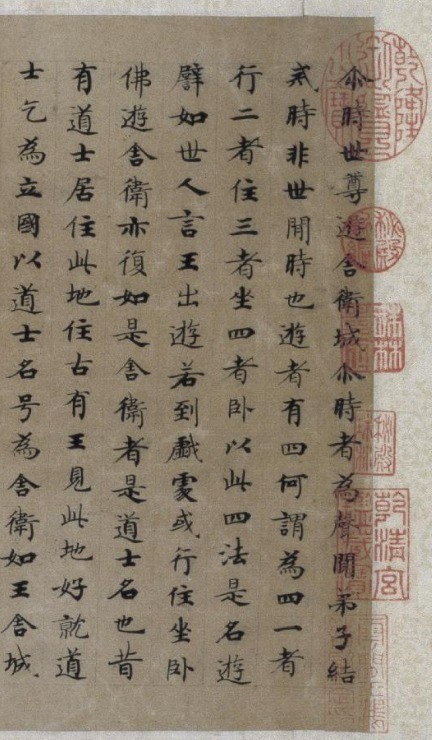 尒時世尊遊舍衛城尒時者為聲聞弟子結
戒時非世閒時也遊者有四何謂為四一者
行二者住三者坐四者卧以此四法是名遊
譬如世人言王出遊若到戲處或行住坐卧
佛遊舍衛亦復如是舍衛者是道士名也昔
有道士居住此地住古有王見此地好就道
士乞為立國以道士名号為舍衛如王舍城
珠林
乾清宮